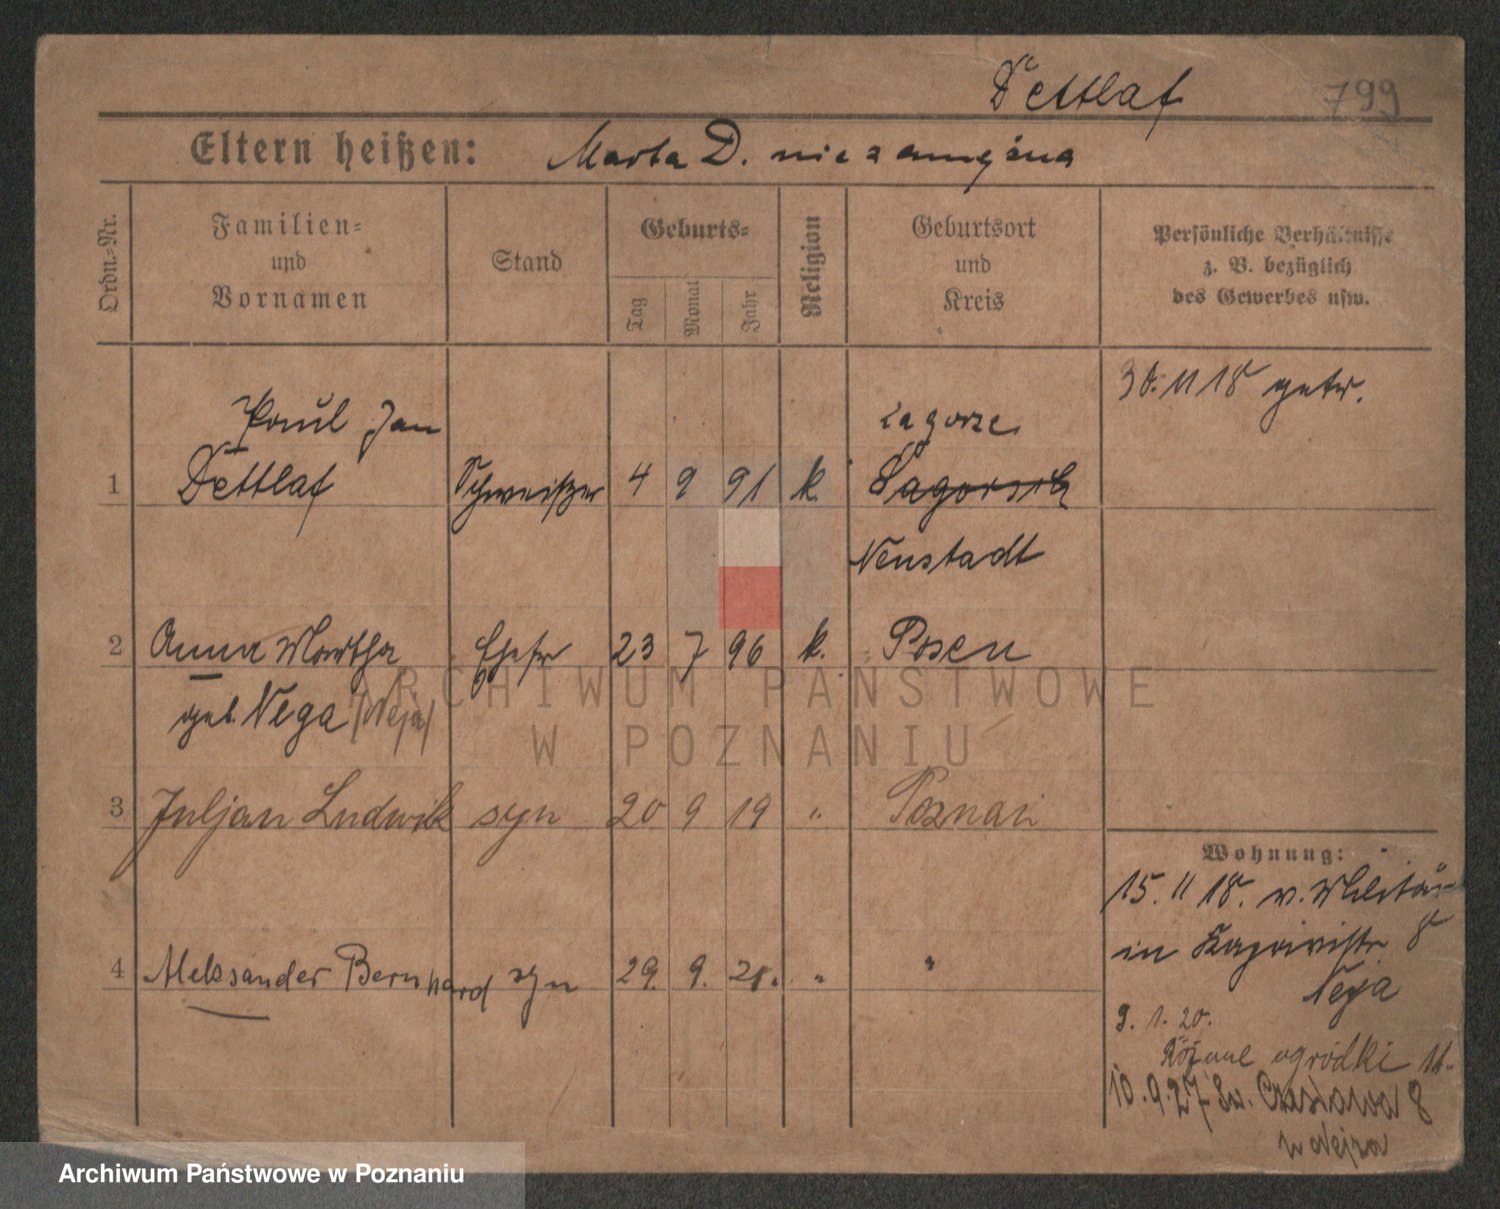 Dettlaf 799
Eltern heißen: Marta D. niezamężna
Ordn.-Nr.
Familien-
und
Vornamen
Stand
Geburts-
Tag
Monat
Jahr
Religion
Geburtsort
und
Kreis
Persönliche Verhältnisse
z. B. bezüglich
des Gewerbes usw.
30. 11 18 getr.
Paul Jan
Zagorze
1 Dettlaf Schweißer 4 9 91 k. Sagorsch
Neustadt
2 Anna Martha Ehefr 23 7 96 k. Posen
geb. Nega /Neja/
3 Juljan Ludwik syn 20 9 19 " Poznań
Wohnung:
15. 11 18. v. Militär
in 8
4 Aleksander Bernhard syn 29. 9. 21. " "
Neja
9. 1. 20.
Różane ogródki 11.
10. 9. 27 Św. Czesława 8
u Neja
ARCHIWUM PAŃSTWOWE
W POZNANIU
Archiwum Państwowe w Poznaniu